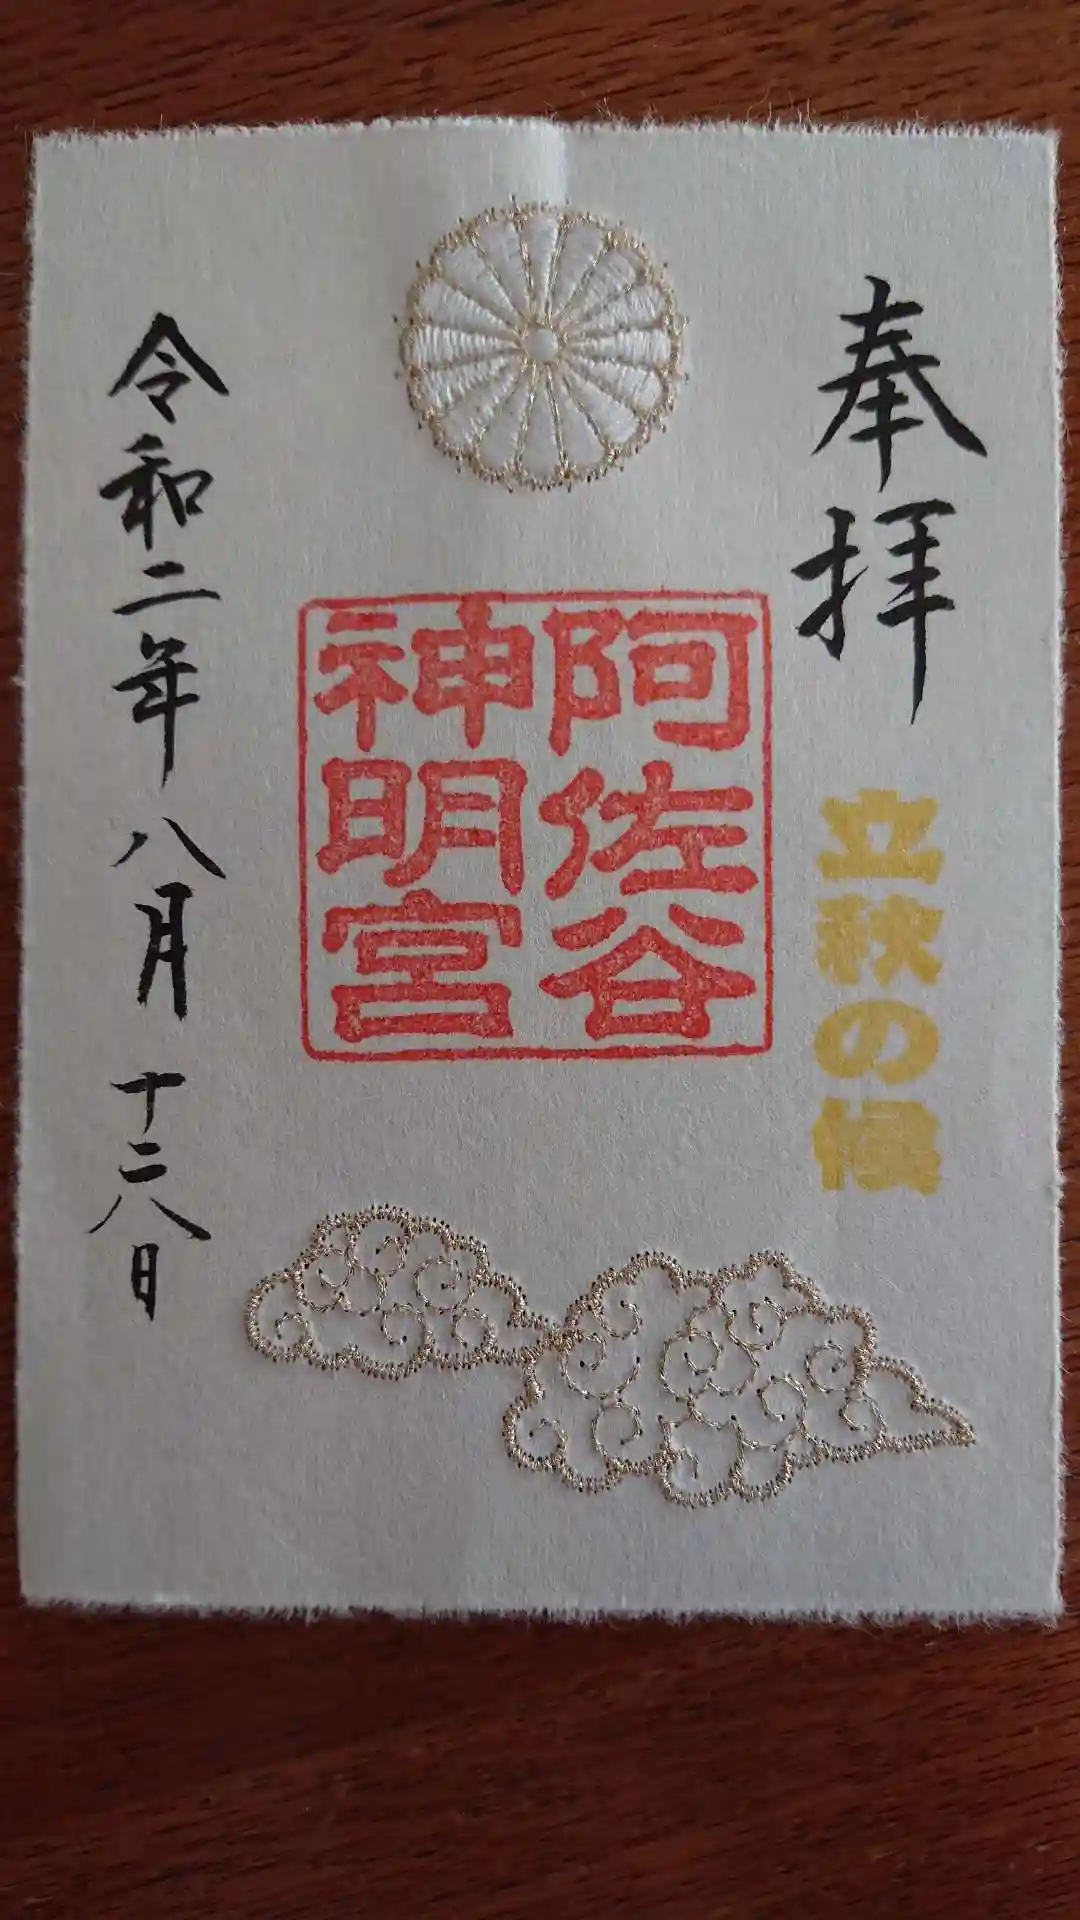 奉拝
立秋の候
阿佐谷
神明宮
令和二年八月十六日